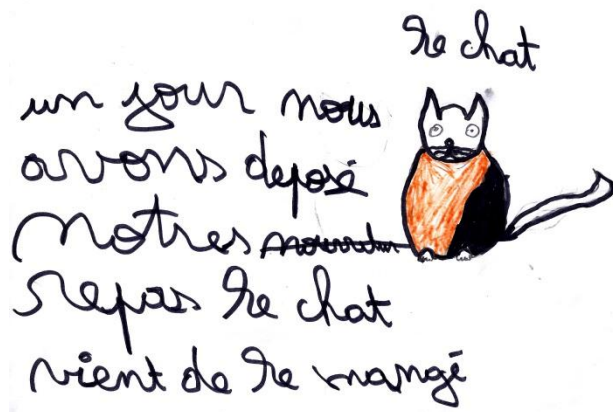 le chat
un jour nous
avons deposé
notres nourritur
repas le chat
vient de le mangé